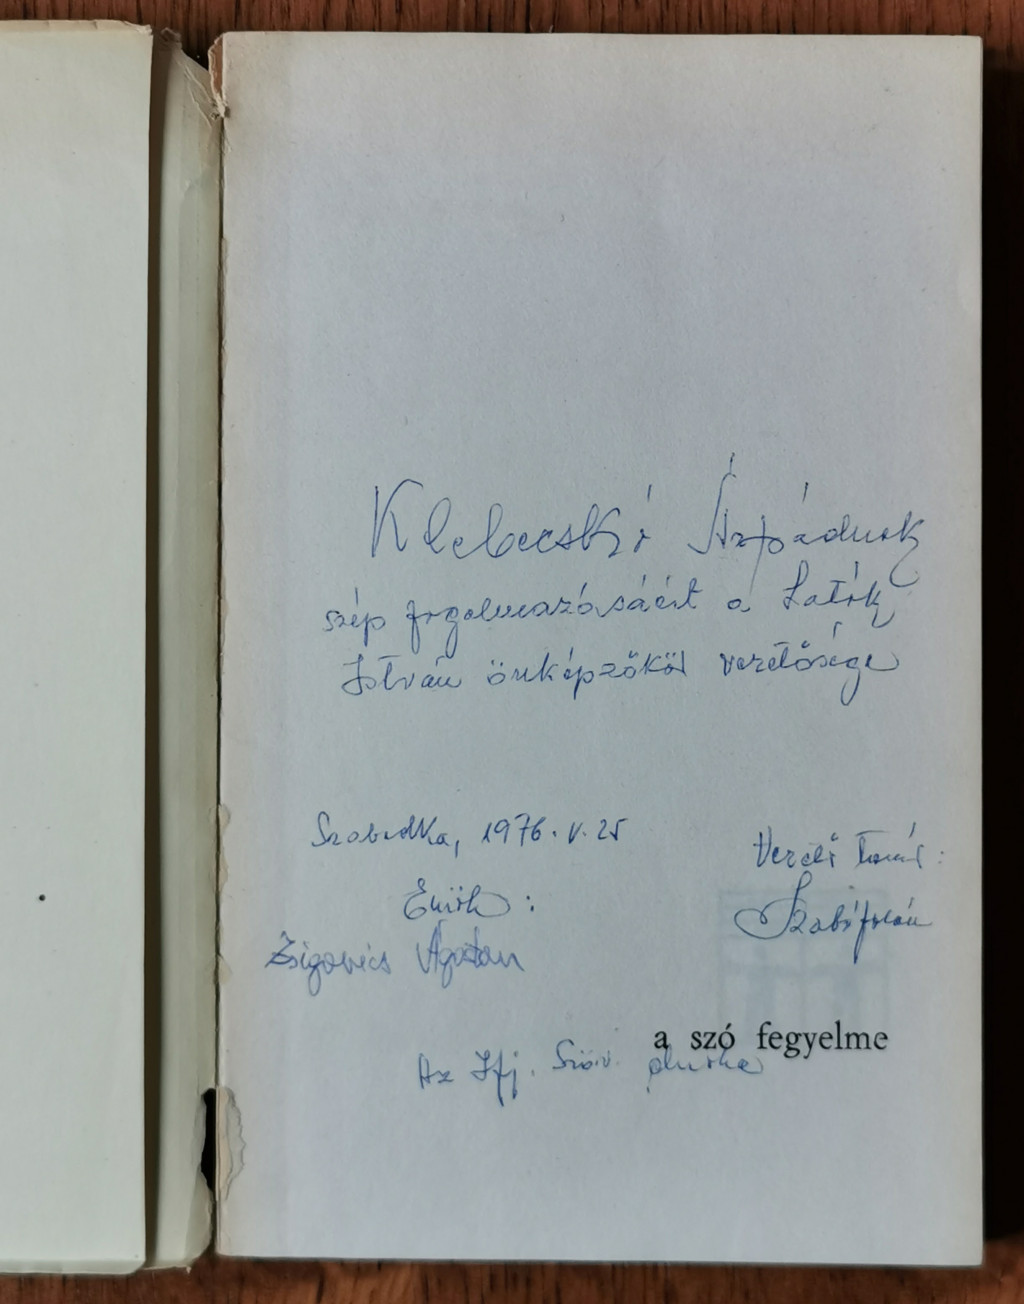 Klebecskó Árpádnak
szép fogalmazásáért a Laták
István önképzőkör vezetősége
Szabadka, 1976. V. 25
Vezető tanár:
Elnök:
Szabó
Zsigovics Ágoston
a szó fegyelme
Az Ifj. Szöv.